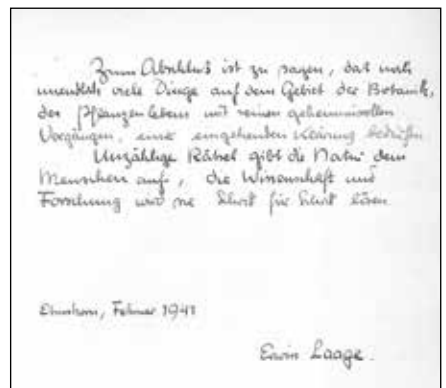 Zum Abschluß ist zu sagen, daß noch
unendlich viele Dinge auf dem Gebiet der Botanik,
des Pflanzenlebens mit seinen geheimnisvollen
Vorgängen, einer eingehenden Klärung bedürfen.
Unzählige Rätsel gibt die Natur dem
Menschen auf, die Wissenschaft und
Forschung wird sie Schritt für Schritt lösen
Elmshorn, Februar 1941
Erwin Laage.